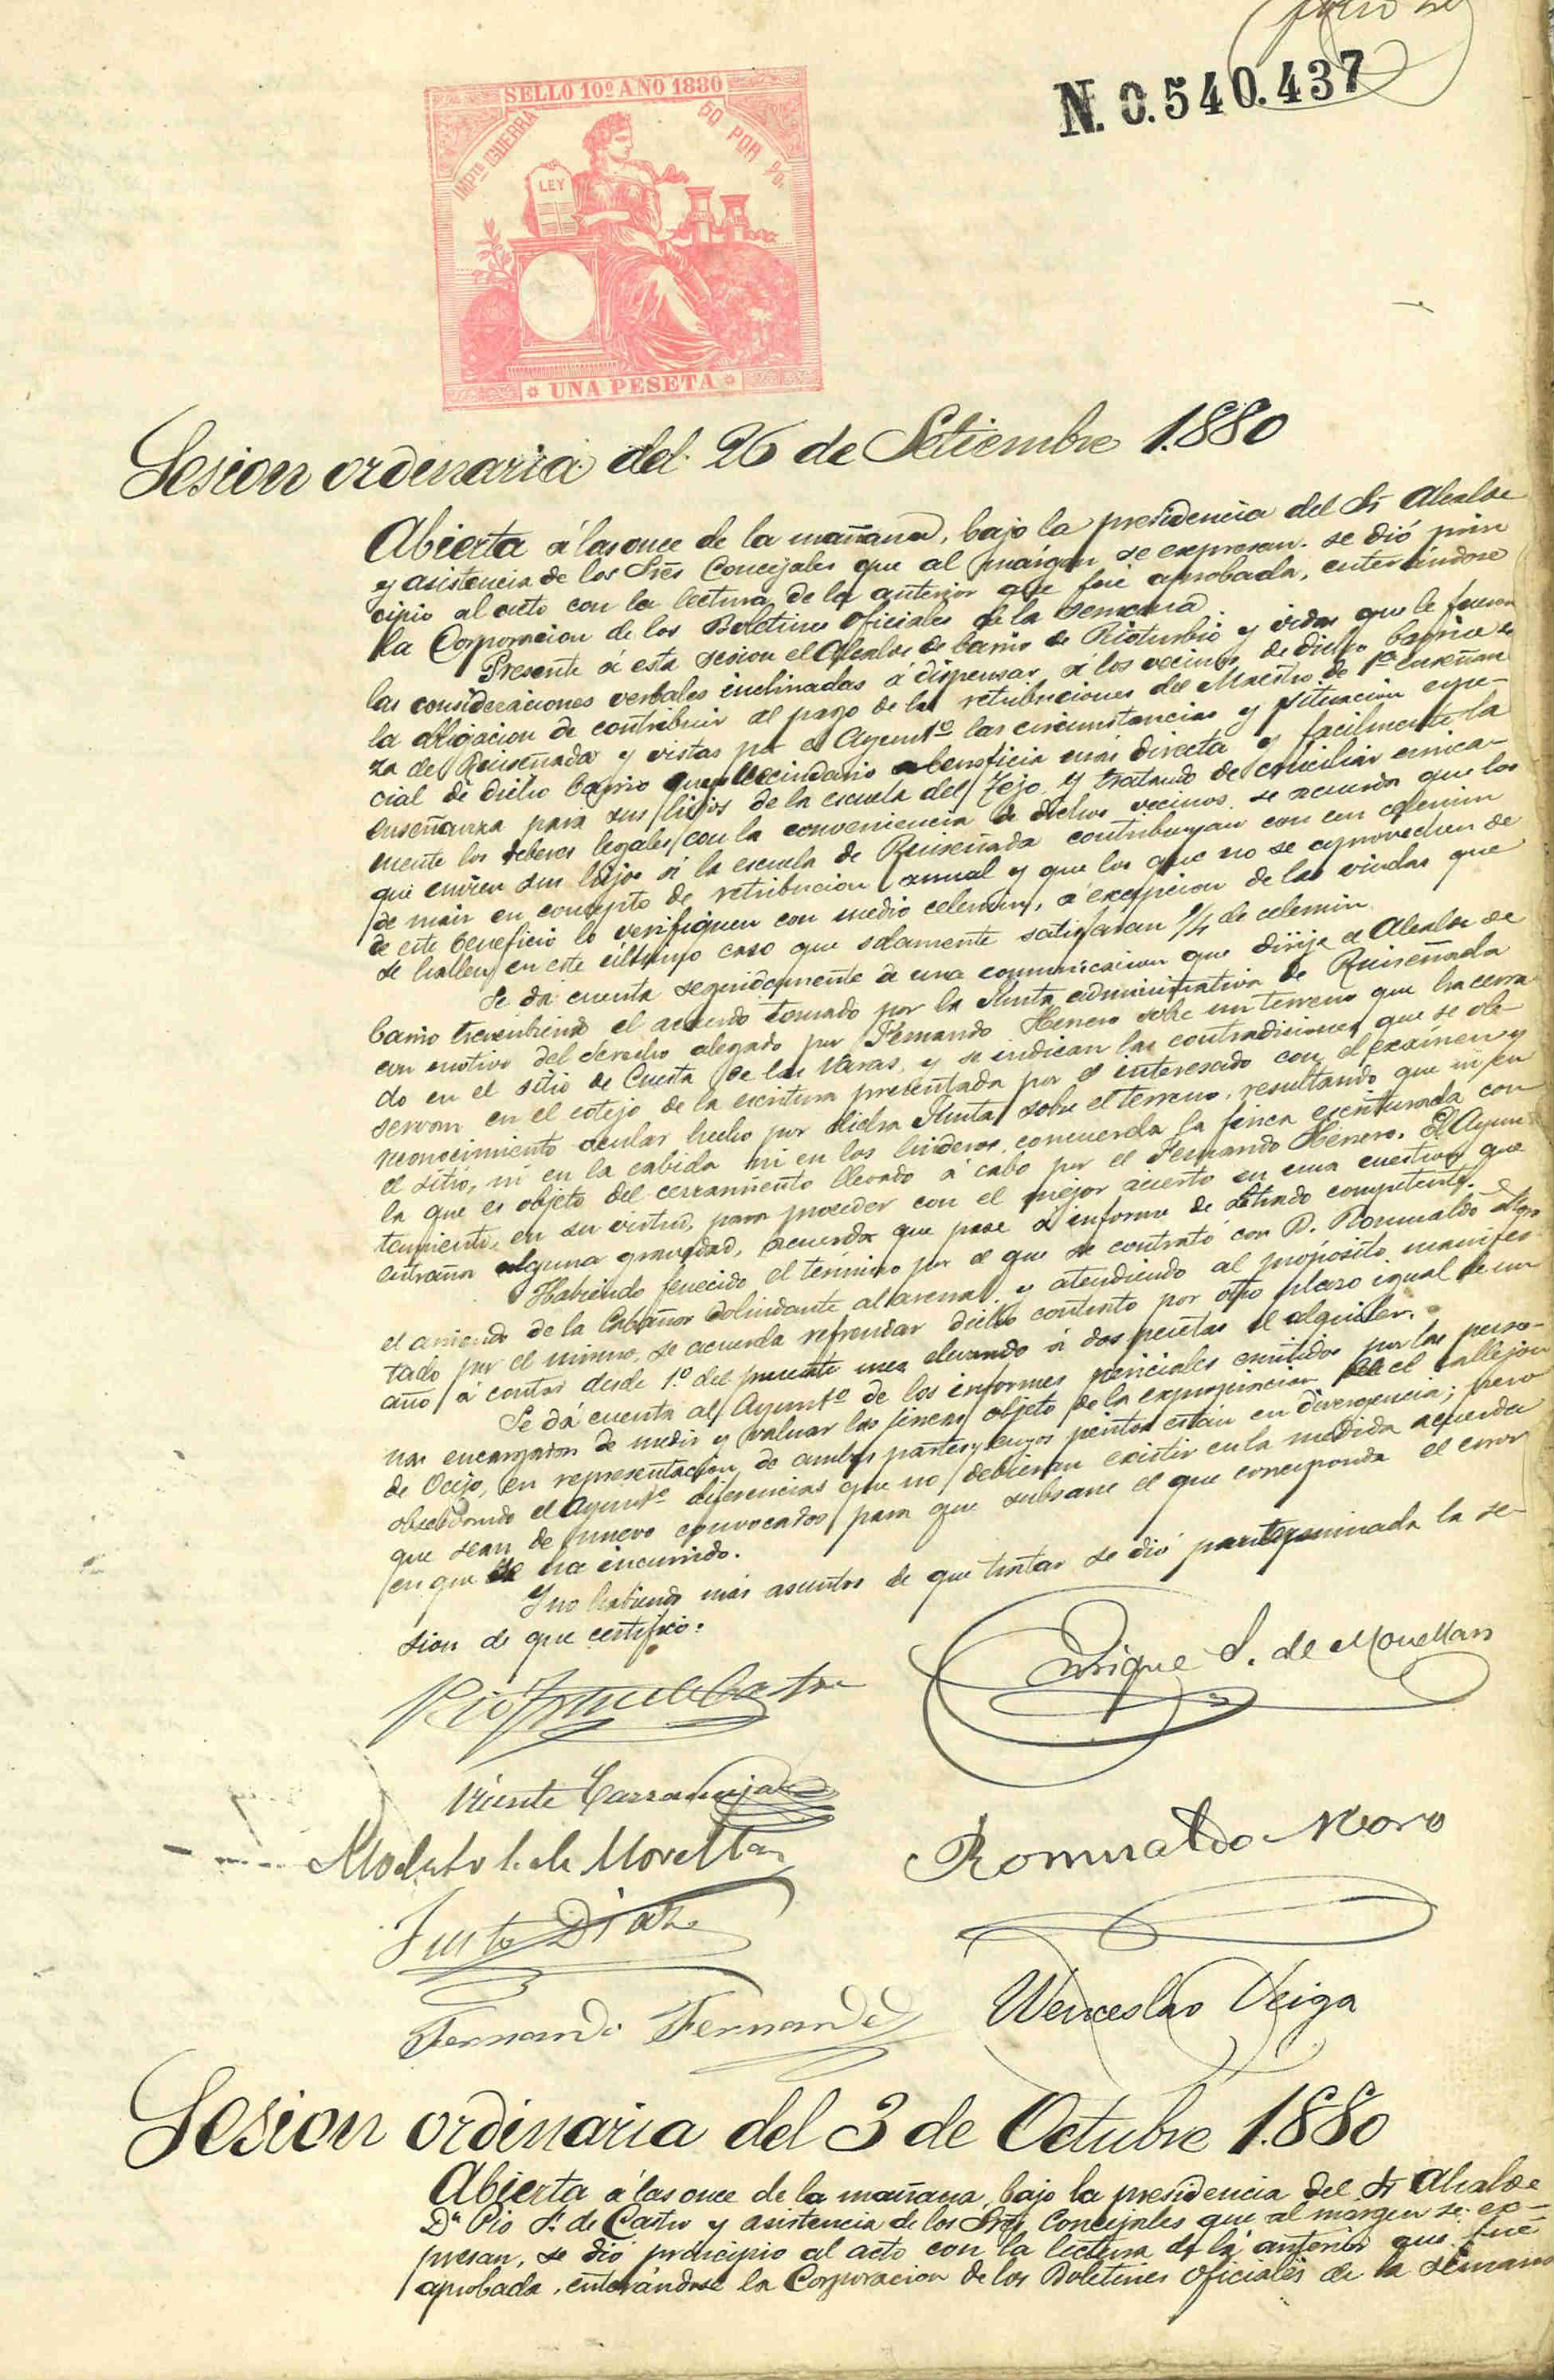 folio
N. 0.540.437
SELLO 10º AÑO 1880
IMPTO GUERRA
50 POR %.
LEY
UNA PESETA
Sesion ordenaria del 26 de Setiembre 1.880
Abierta á las once de la mañana, bajo la presidencia del Sr Alcalde
y asistencia de los Srēs Concejales que al márgen se expresan. se dió prin
cipio al acto con la lectura de la anterior que fué aprobada, enterándose
la Corporacion de los Boletines Oficiales de la semana.
Presente á esta sesion el Alcalde de barrio de Rioturbio y oidas que le fueron
las consideraciones verbales inclinadas á dispensar á los vecinos de dicho barrio de
la obligacion de contribuir al pago de las retribuciones del Maestro de 1ª enseñan
za de Ruiseñada y vistas por el Ayuntº las circunstancias y situacion espe-
cial de dicho barrio cuyo vecindario beneficia más directa y facilmente la
enseñanza para sus hijos de la escuela del Tejo, y tratando de conciliar única-
mente los deberes legales con la conveniencia de dichos vecinos, se acuerda que los
que envien sus hijos á la escuela de Ruiseñada contribuyan con un celemin
de maiz en concepto de retribucion anual y que los que no se aprovechen de
de este beneficio lo verifiquen con medio celemin, á excepcion de las viudas que
se hallen en este último caso que solamente satisfaran 1/4 de celemin.
Se dá cuenta seguidamente de una comunicacion que dirije el Alcalde de
barrio trascribiendo el acuerdo tomado por la Junta administrativa de Ruiseñada
con motivo del derecho alegado por Fernando Herrero sobre un terreno que ha cerra
do en el sitio de Cuesta de las Varas, y se indican las contradiciones que se ob-
servan en el cotejo de la escritura presentada por el interesado con el exámen y
reconocimiento ocular hecho por dicha Junta sobre el terreno, resultando que ni en
el sitio, ni en la cabida ni en los linderos, concuerda la finca escriturada con
la que es objeto del cerramiento llevado á cabo por el Fernando Herrero. El Ayun
tamiento, en su virtud, para proceder con el mejor acierto en una cuestion que
entraña alguna gravedad, acuerda que pase á informe de letrado competente.
Habiendo fenecido el término por el que se contrató con D. Romualdo Moro
el arriendo de la Cabaña colindante al arenal, y atendiendo al propósito manifes
tado por el mismo, se acuerda refrendar dicho contrato por otro plazo igual de un
año á contar desde 1º del presente mes elevando á dos pesetas el alquiler.
Se dá cuenta al Ayuntº de los informes periciales emitidos por las perso-
nas encargadas de medir y valuar las fincas objeto de la expropiacion el callejon
de Ocejo, en representacion de ambas partes y cuyos peritos están en divergencia; pero
observando el Ayuntº diferencias que no debieran existir en la medida acuerda
que sean de nuevo convocados para que subsane el que corresponda el error
en que se ha incurrido.
Y no habiendo más asuntos de que tratar se dió por terminada la se-
sion de que certifico.
Enrique S. de Movellan
Pio de Castro
Vicente Carrandeja
Modesto S. de Movellan
Romualdo Moro
Justo Diaz
Wenceslao Veiga
Fernando Fernandez
Sesion ordinaria del 3 de Octubre 1.880
Abierta á las once de la mañana, bajo la presidencia del Sr Alcalde
Dn Pio Fz de Castro y asistencia de los Srēs Concejales que al márgen se ex-
presan, se dió principio al acto con la lectura de la anterior que fué
aprobada, enterándose la Corporacion de los Boletines Oficiales de la semana